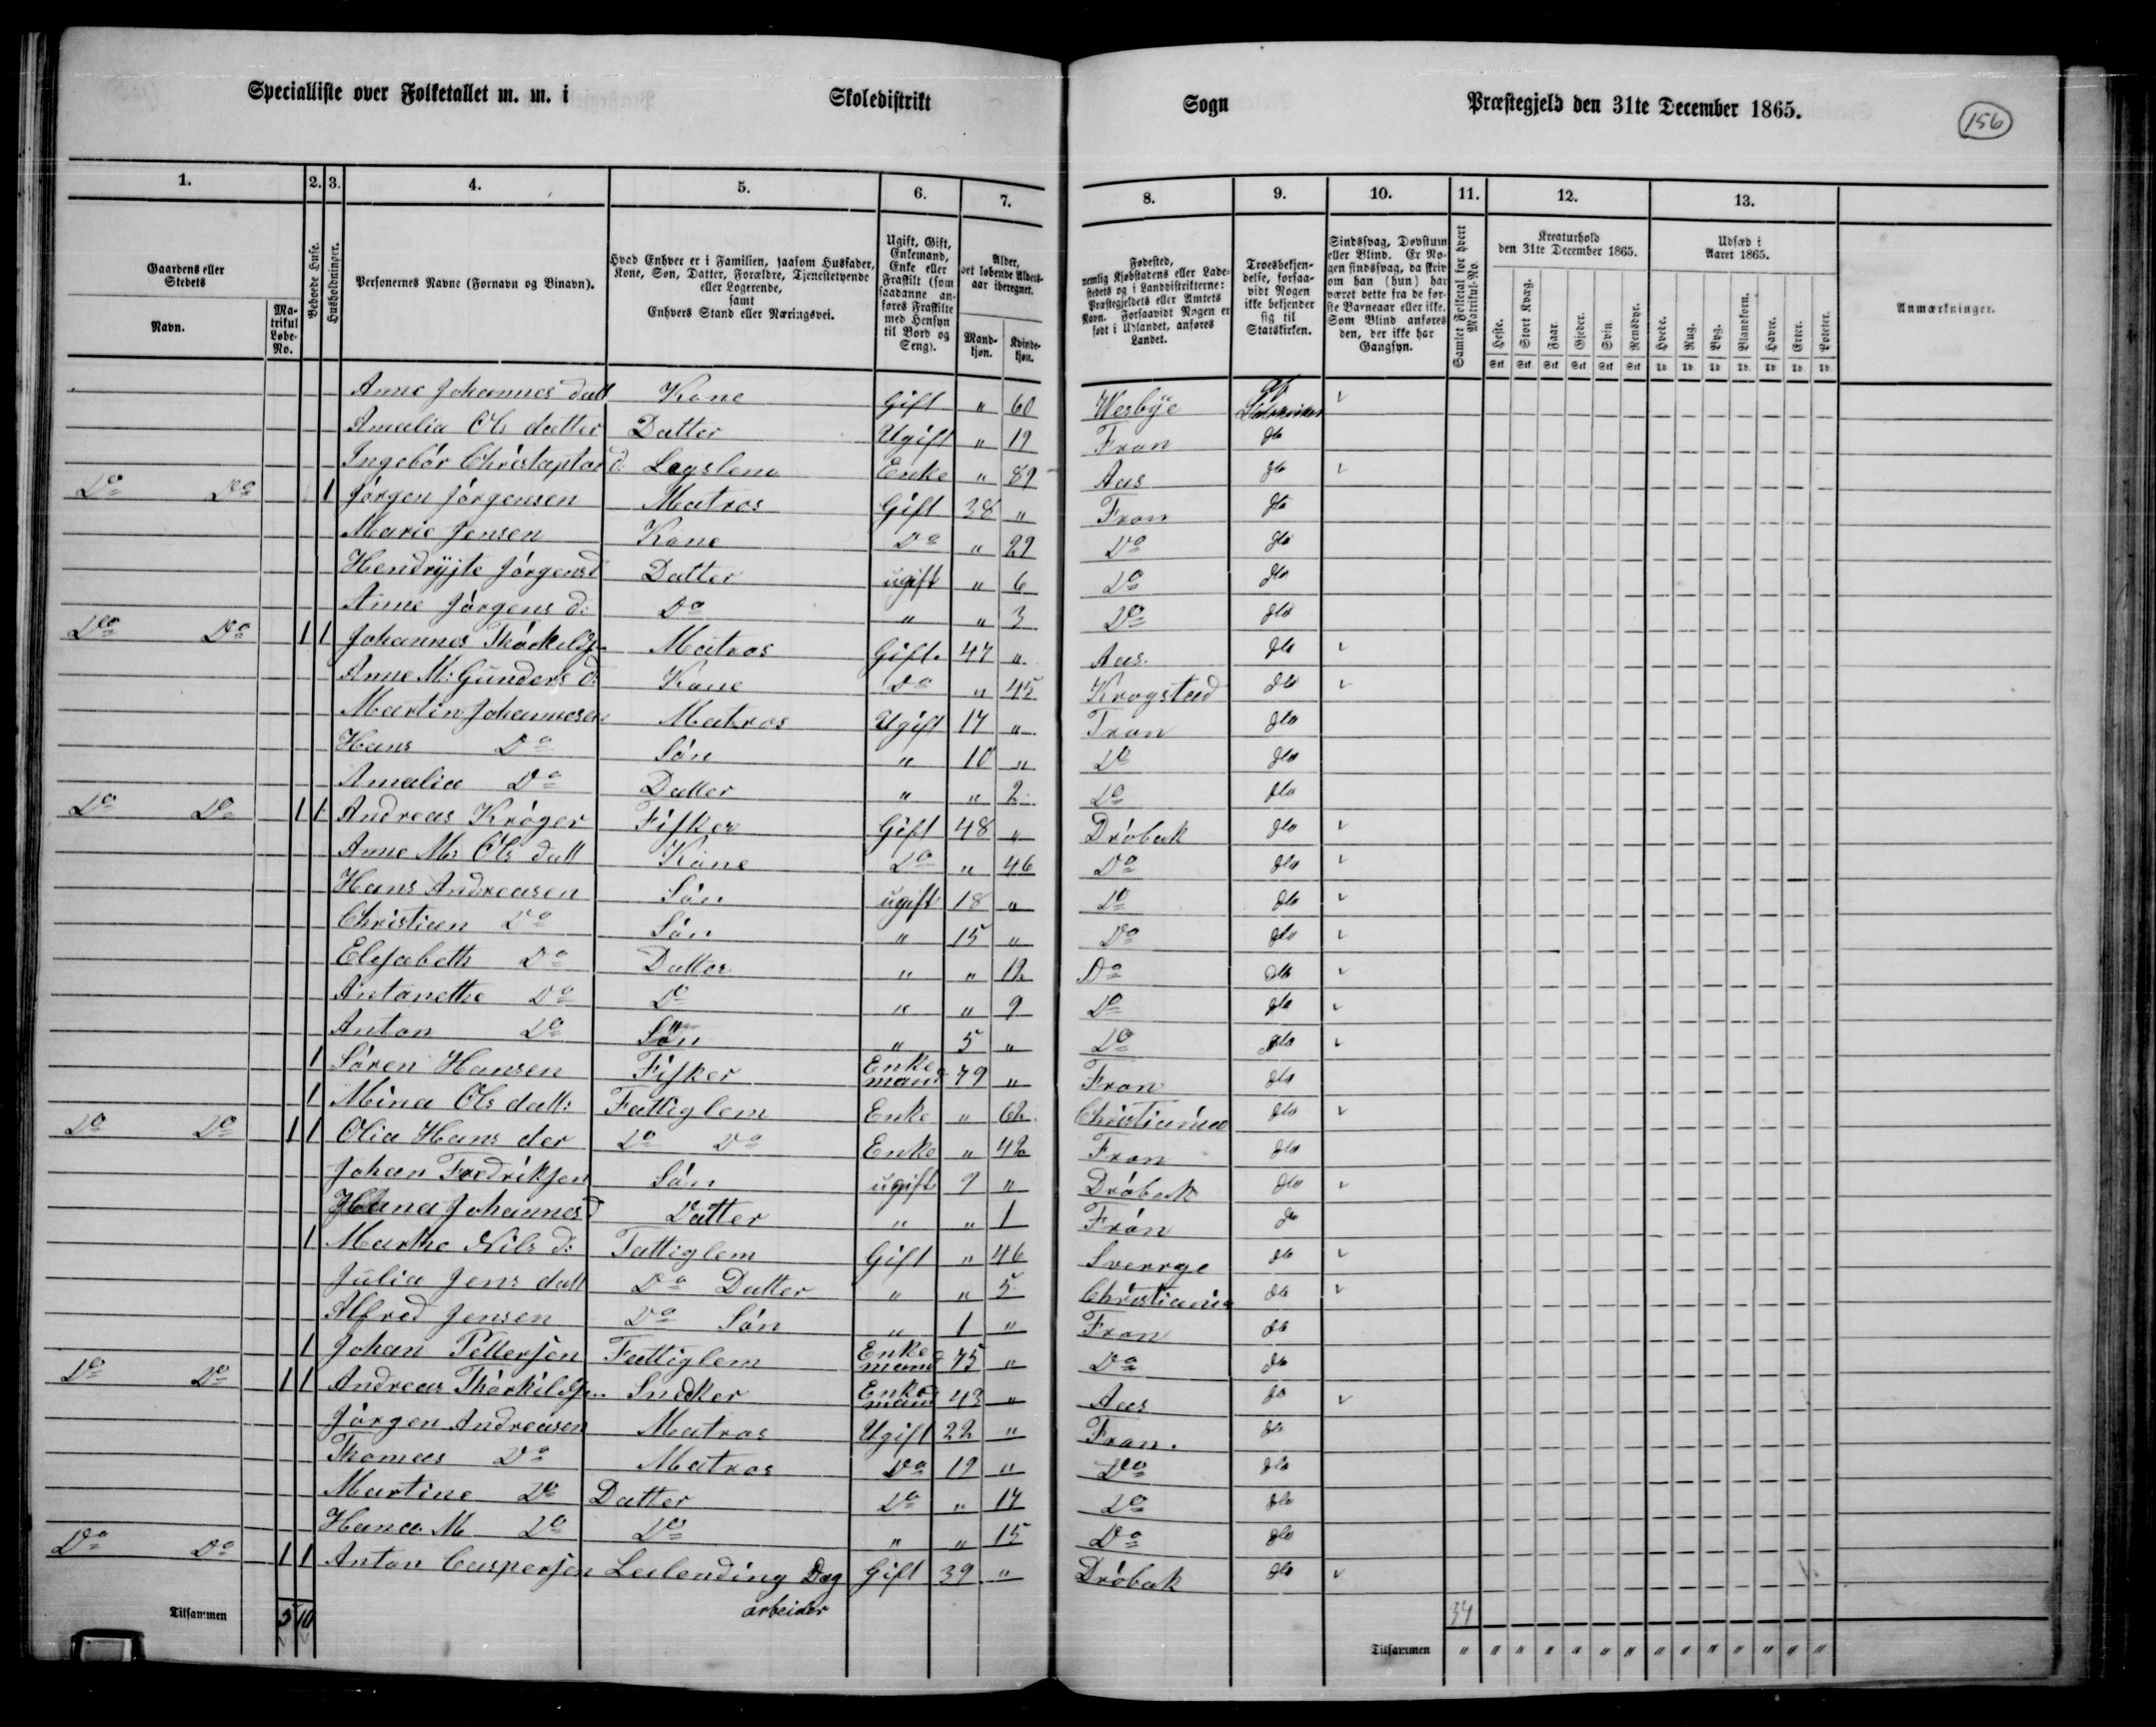 Specialliste over Folketallet m. m. i Skoledistrikt Sogn Præstegjeld den 31te December 1865. 156
1. 2. 3. 4. 5. 6. 7. 8. 9. 10. 11. 12. 13.
Gaardens eller Stedets
Navn.
Matrikul Løbe-No.
Beboede Huse.
Husholdninger.
Personernes Navne (Fornavn og Binavn).
Hvad Enhver er i Familien, saasom Husfader, Kone, Søn, Datter, Forældre, Tjenestetyende eller Logerende, samt Enhvers Stand eller Næringsvei.
Ugift, Gift, Enkemand, Enke eller Fraskilt (som saadanne anføres Fraskilte med Hensyn til Bord og Seng).
Alder, det løbende Alders-aar iberegnet.
Mandkjøn. Kvindekjøn.
Fødested, nemlig Kjøbstadens eller Ladestedets og i Landdistrikterne: Præstegjeldets eller Amtets Navn. Forsaavidt Nogen er født i Udlandet, anføres Landet.
Troesbekjendelse, forsaavidt Nogen ikke bekjender sig til Statskirken.
Sindssvag, Døvstum eller Blind. Er Nogen sindssvag, da skriv om han (hun) har været dette fra de første Barneaar eller ikke. Som Blind anføres den, der ikke har Gangsyn.
Samlet Folketal for hvert Matrikul-No.
Kreaturhold den 31te December 1865.
Heste. Stort Kvæg. Faar. Gjeder. Svin. Rensdyr.
Udsæd i Aaret 1865.
Hvede. Rug. Byg. Blandkorn. Havre. Erter. Poteter.
Anmærkninger.
Stk. Stk. Stk. Stk. Stk. Stk. Td. Td. Td. Td. Td. Td. Td.
Anne Johannes datt Kone Gift " 60 Wesbÿe
Amalia Ols datter Datter Ugift " 19 Fron do
Ingebór Christophor d: Legslem Enke " 89 Aas do
Do Do 1 Jórgen Jórgensen Matros Gift 38 " Fron do
Marie Jensen Kone Do " 29 Do do
Hendrÿjte Jórgensd Datter ugift " 6 Do do
Anne Jórgens d: Do " " 3 Do do
Do Do 1 1 Johannes Thórkilds Matros Gift 47 " Aas. do
Anne M: Gunders d: Kone Do " 45 Krogstad do
Martin Johannesen Matros Ugift 17 " Fron do
Hans Do Són " 10 " Do do
Amalia Do Datter " " 2 Do do
Do Do 1 1 Andreas Króger Fisker Gift 48 " Dróbak do
Anne M: Ols datt Kone Do " 46 Do do
Hans Andreasen Són ugift 18 " Do do
Christian Do Són " 15 " Do do
Elisabeth Do Datter " " 12 Do do
Antonethe Do Do " " 9 Do do
Anton Do Són " 5 " Do do
1 Sóren Hansen Fisker Enkemand 79 " Fron do
1 Mina Ols datt: Fattiglem Enke " 62 Christiania do
Do Do 1 1 Olia Hans der Do Do Enke " 42 Fron do
Johan Fredriksen Són ugift 9 " Dróbak do
Johannes d Datter " " 1 Frón do
1 Marthe Nils d: Fattiglem Gift " 46 Sverrge do
Julia Jens datt Do Datter " " 5 Christiania do
Alfred Jensen Do Són " 1 " Fron do
1 Johan Pettersen Fattiglem Enkemand 75 " Do do
Do Do 1 1 Andreas Thórkilds Snedker Enkemand 43 " Aas do
Jórgen Andreasen Matros Ugift 22 " Fron. do
Thomas Do Matros Do 19 " Do do
Martine Do Datter Do " 17 Do do
Hana M Do Do " " 15 Do do
Do Do 1 1 Anton Caspersen Leilending Dag Gift 39 " Dróbak do
arbeider
Tilsammen 5 10 34
Tilsammen " " " " " " " " " " " " " "